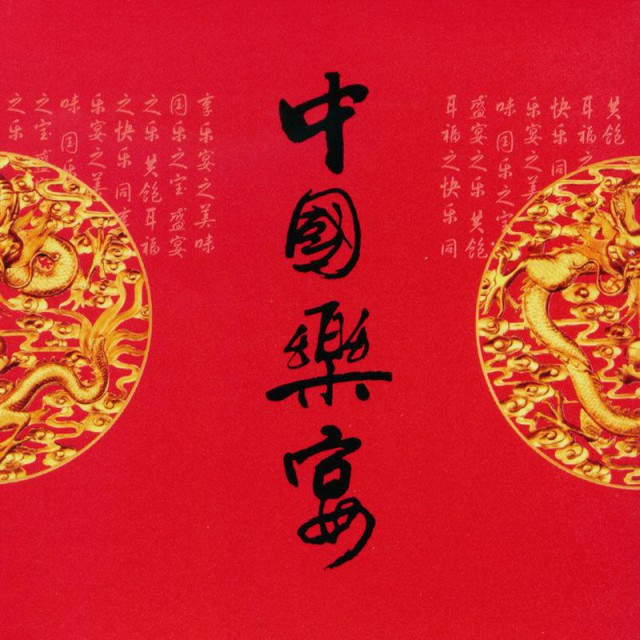 共饱
耳福之
快乐同
乐宴之美
味国乐之宝
盛宴之乐共饱
耳福之快乐同
中國樂宴
享乐宴之美味
国乐之宝盛宴
之乐共饱耳福
之快乐同享
乐宴之美
味国乐
之宝
之乐